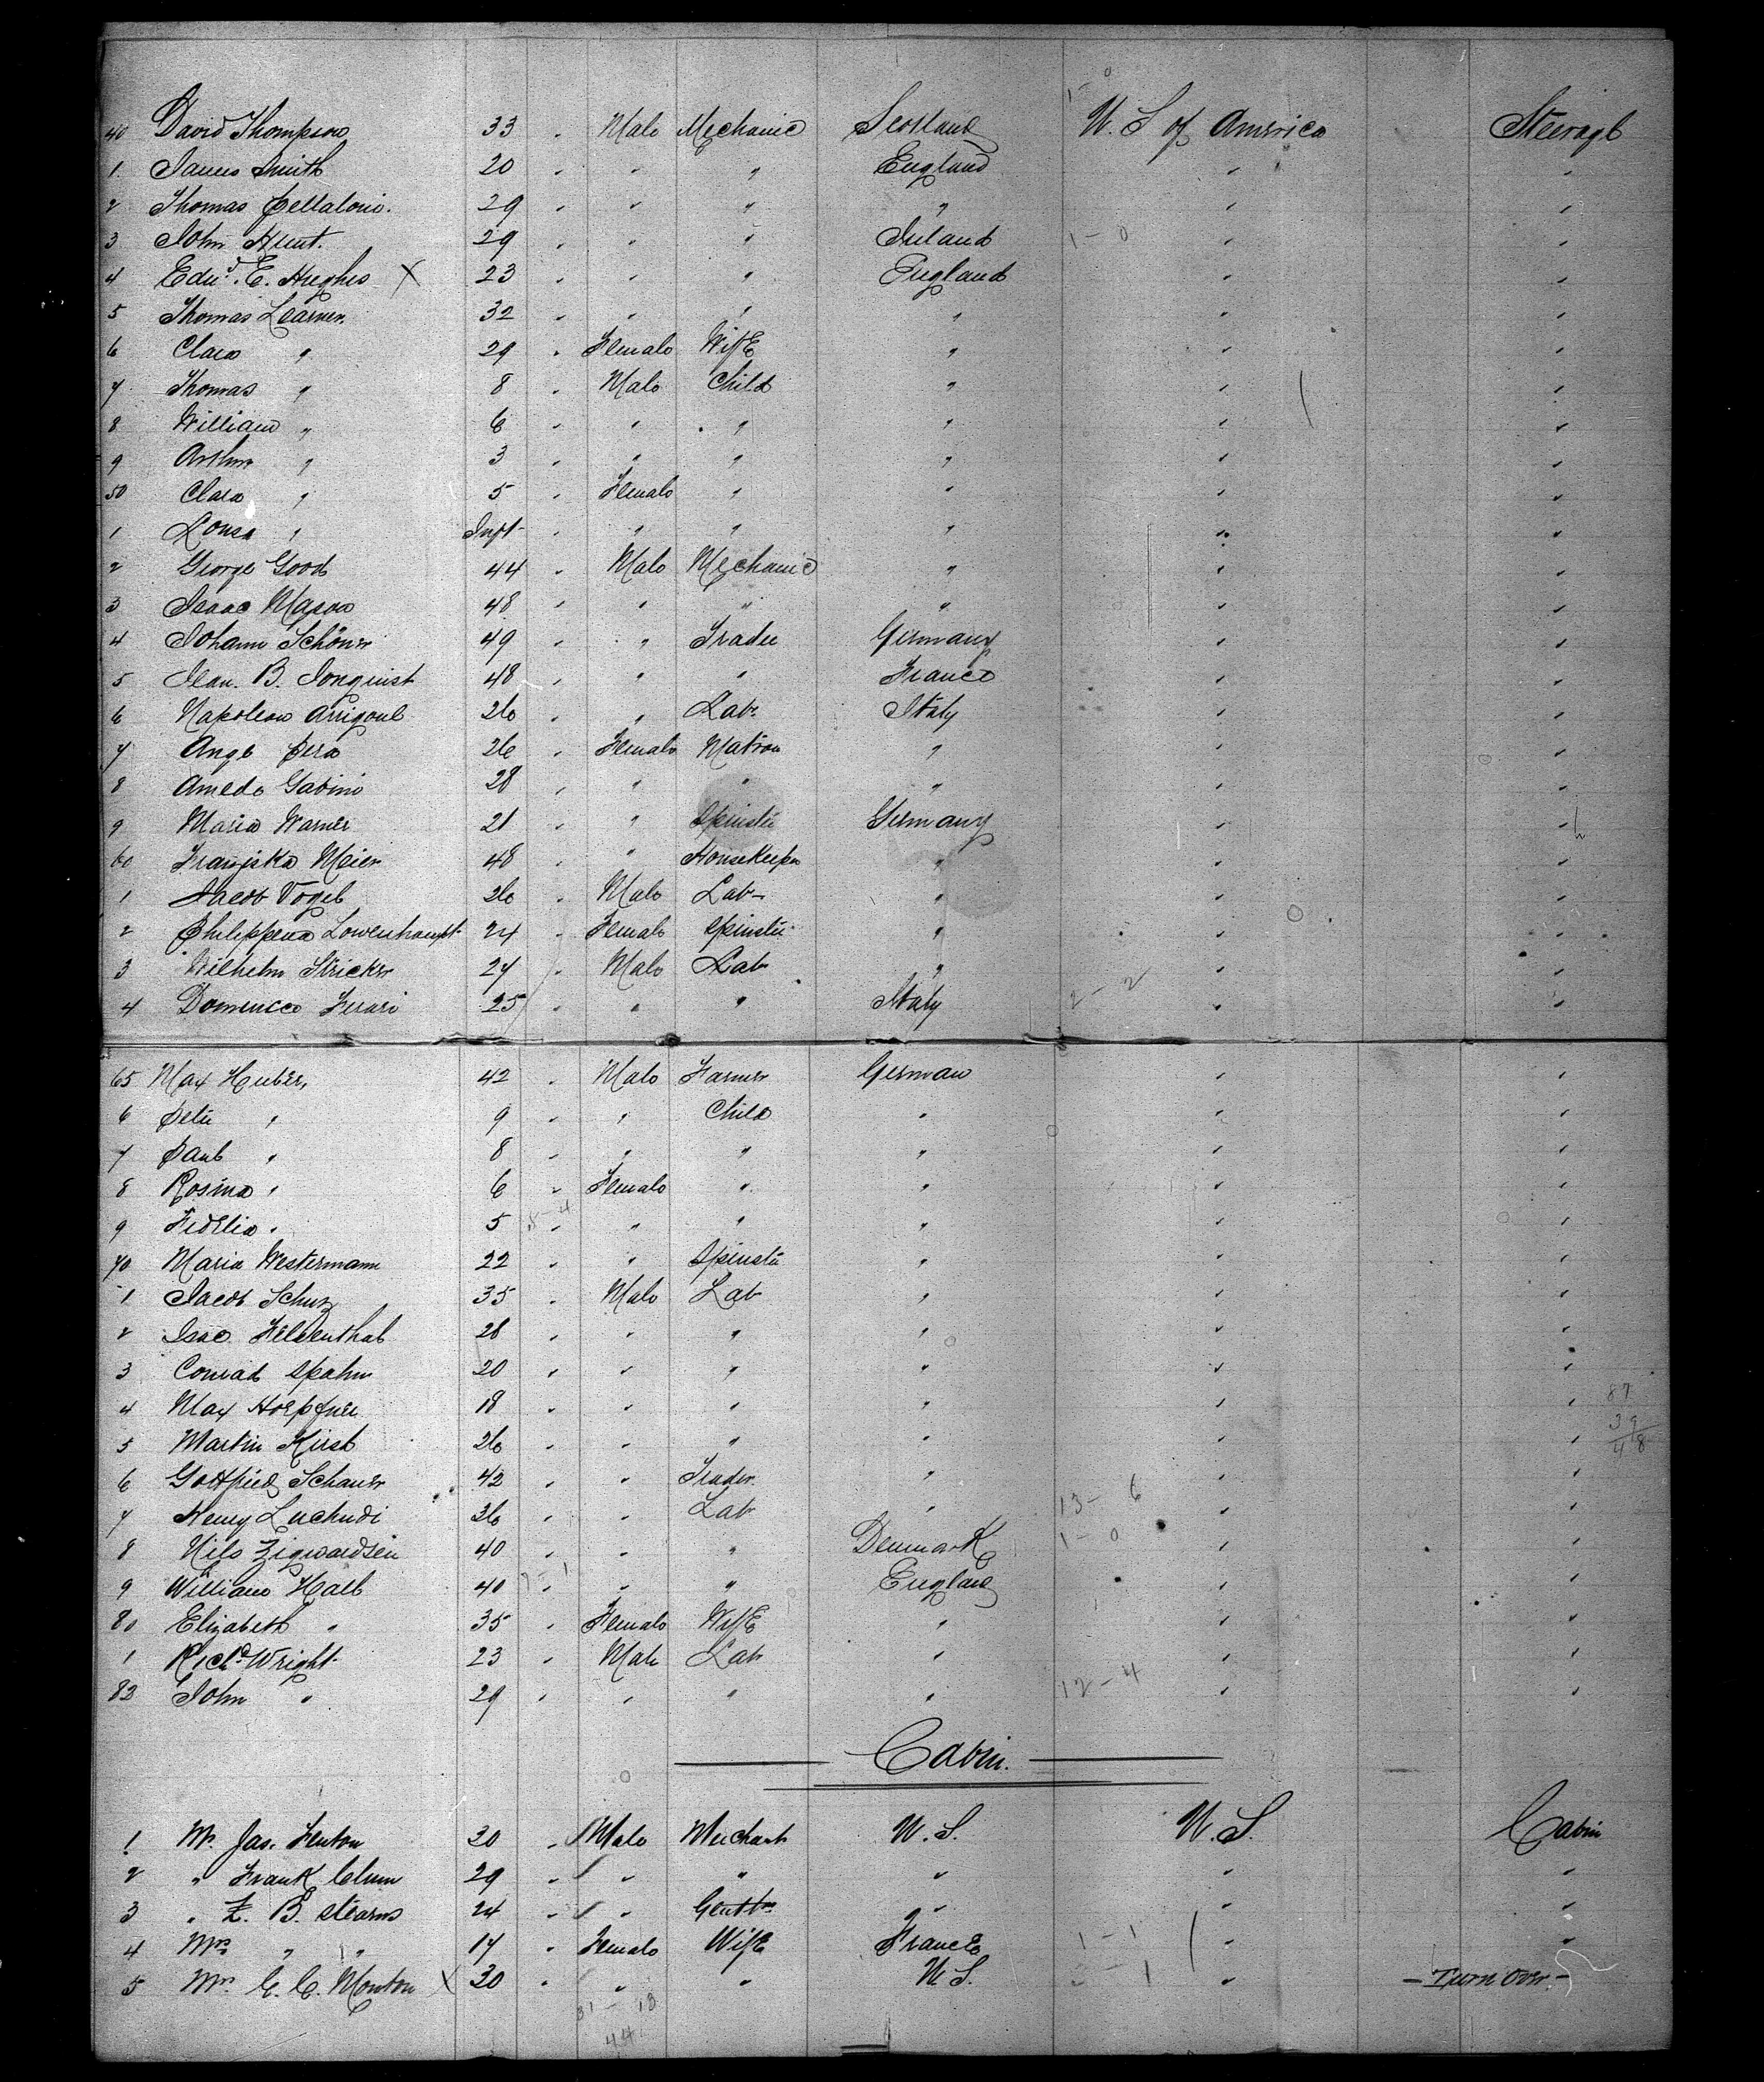 40 David Thompson 33 " Male Mechanic Scotland U. S of America Steerage
1 James Smith 20 " " " England " "
2 Thomas 29 " " " " " "
3 John Hunt. 29 " " " Ireland 1-0 " "
4 Edwd. E. Hughes X 23 " " " England " "
5 Thomas Learner 32 " " " " " "
6 Clara " 29 " Female Wife " " "
7 Thomas " 8 " Male Child " " "
8 William " 6 " " " " " "
9 Arthur " 3 " " " " " "
50 Clara " 5 " Female " " " "
1 Lousa " Inft " " " " " "
2 George Good 44 " Male Mechanic " " "
3 Isaac Mason 48 " " " " " "
4 Johann Schöner 49 " " Trader Germany " "
5 Jean. B. Jonquist 48 " " " France " "
6 Napoleon 26 " " Lab. Italy " "
7 Ange Pera 26 " Female Matron " " "
8 Amedo Gavino 28 " " " " " "
9 Maria Warner 21 " " Spinster Germany " "
60 Franziska Meier 48 " " Housekeeper " " "
1 Jacob Vogel 26 " Male Lab " " "
2 Philippena Lowenhaupt 24 " Female Spinster " " "
3 Wilhelm Stricker 27 " Male Lab " " "
4 Domenico Ferari 25 " " " Italy 2-2 " "
65 Max Huber, 42 " Male Farmer German " "
6 Peter " 9 " " Child " " "
7 Paul " 8 " " " " " "
8 Rosina " 6 " Female " " " "
9 Fidelia " 5 " " " " " "
70 Maria Westermann 22 " " Spinster " " "
1 Jacob Schuz 35 " Male Lab " " "
2 Isac Felsenthal 28 " " " " " "
3 Conrad Spahn 20 " " " " " "
4 Max Hoepfner 18 " " " " " " 87
5 Martin Kirst 26 " " " " " " 39 48
6 Gottfried Schauer 42 " " Trader " " "
7 Henry Luchudi 36 " " Lab " 13-6 " "
8 Nils Zigwardsen 40 " " " Denmark 1-0 " "
9 William Hall 40 " " " England " "
80 Elizabeth " 35 " Female Wife " " "
1 Richd Wright 23 " Male Lab " " "
82 John " 29 " " " " 12-4 " "
Cabin.
1 Mr. Jas. Fenton 30 " Male Merchant U. S. U. S. Cabin
2 " Frank Clum 29 " " " " " "
3 " Z. B. Stearns 24 " " Gentln " " "
4 Mrs " " " 17 " Female Wife France 1-1 " "
5 Mrs. C. C. Monton X 30 " " " U S. " - Turn Over -
31-13
44